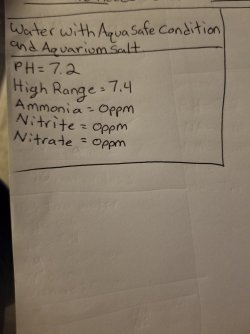 Water with Aqua Safe Condition
and Aquarium Salt
PH = 7.2
High Range = 7.4
Ammonia = 0ppm
Nitrite = 0ppm
Nitrate = 0ppm